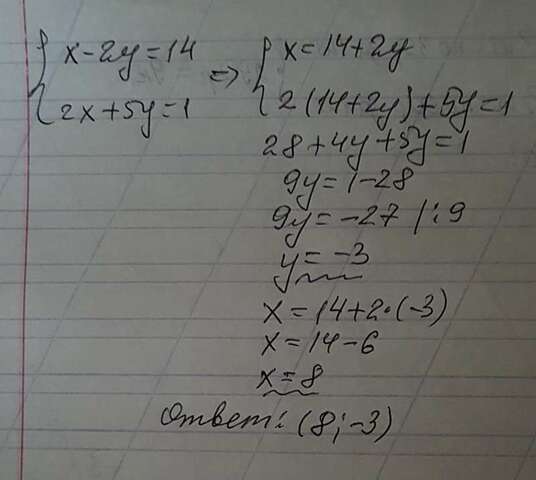 { x-2y=14 => { x=14+2y
{ 2x+5y=1 { 2(14+2y)+5y=1
28+4y+5y=1
9y=1-28
9y=-27 |:9
y=-3
x=14+2·(-3)
x=14-6
x=8
Ответ: (8;-3)